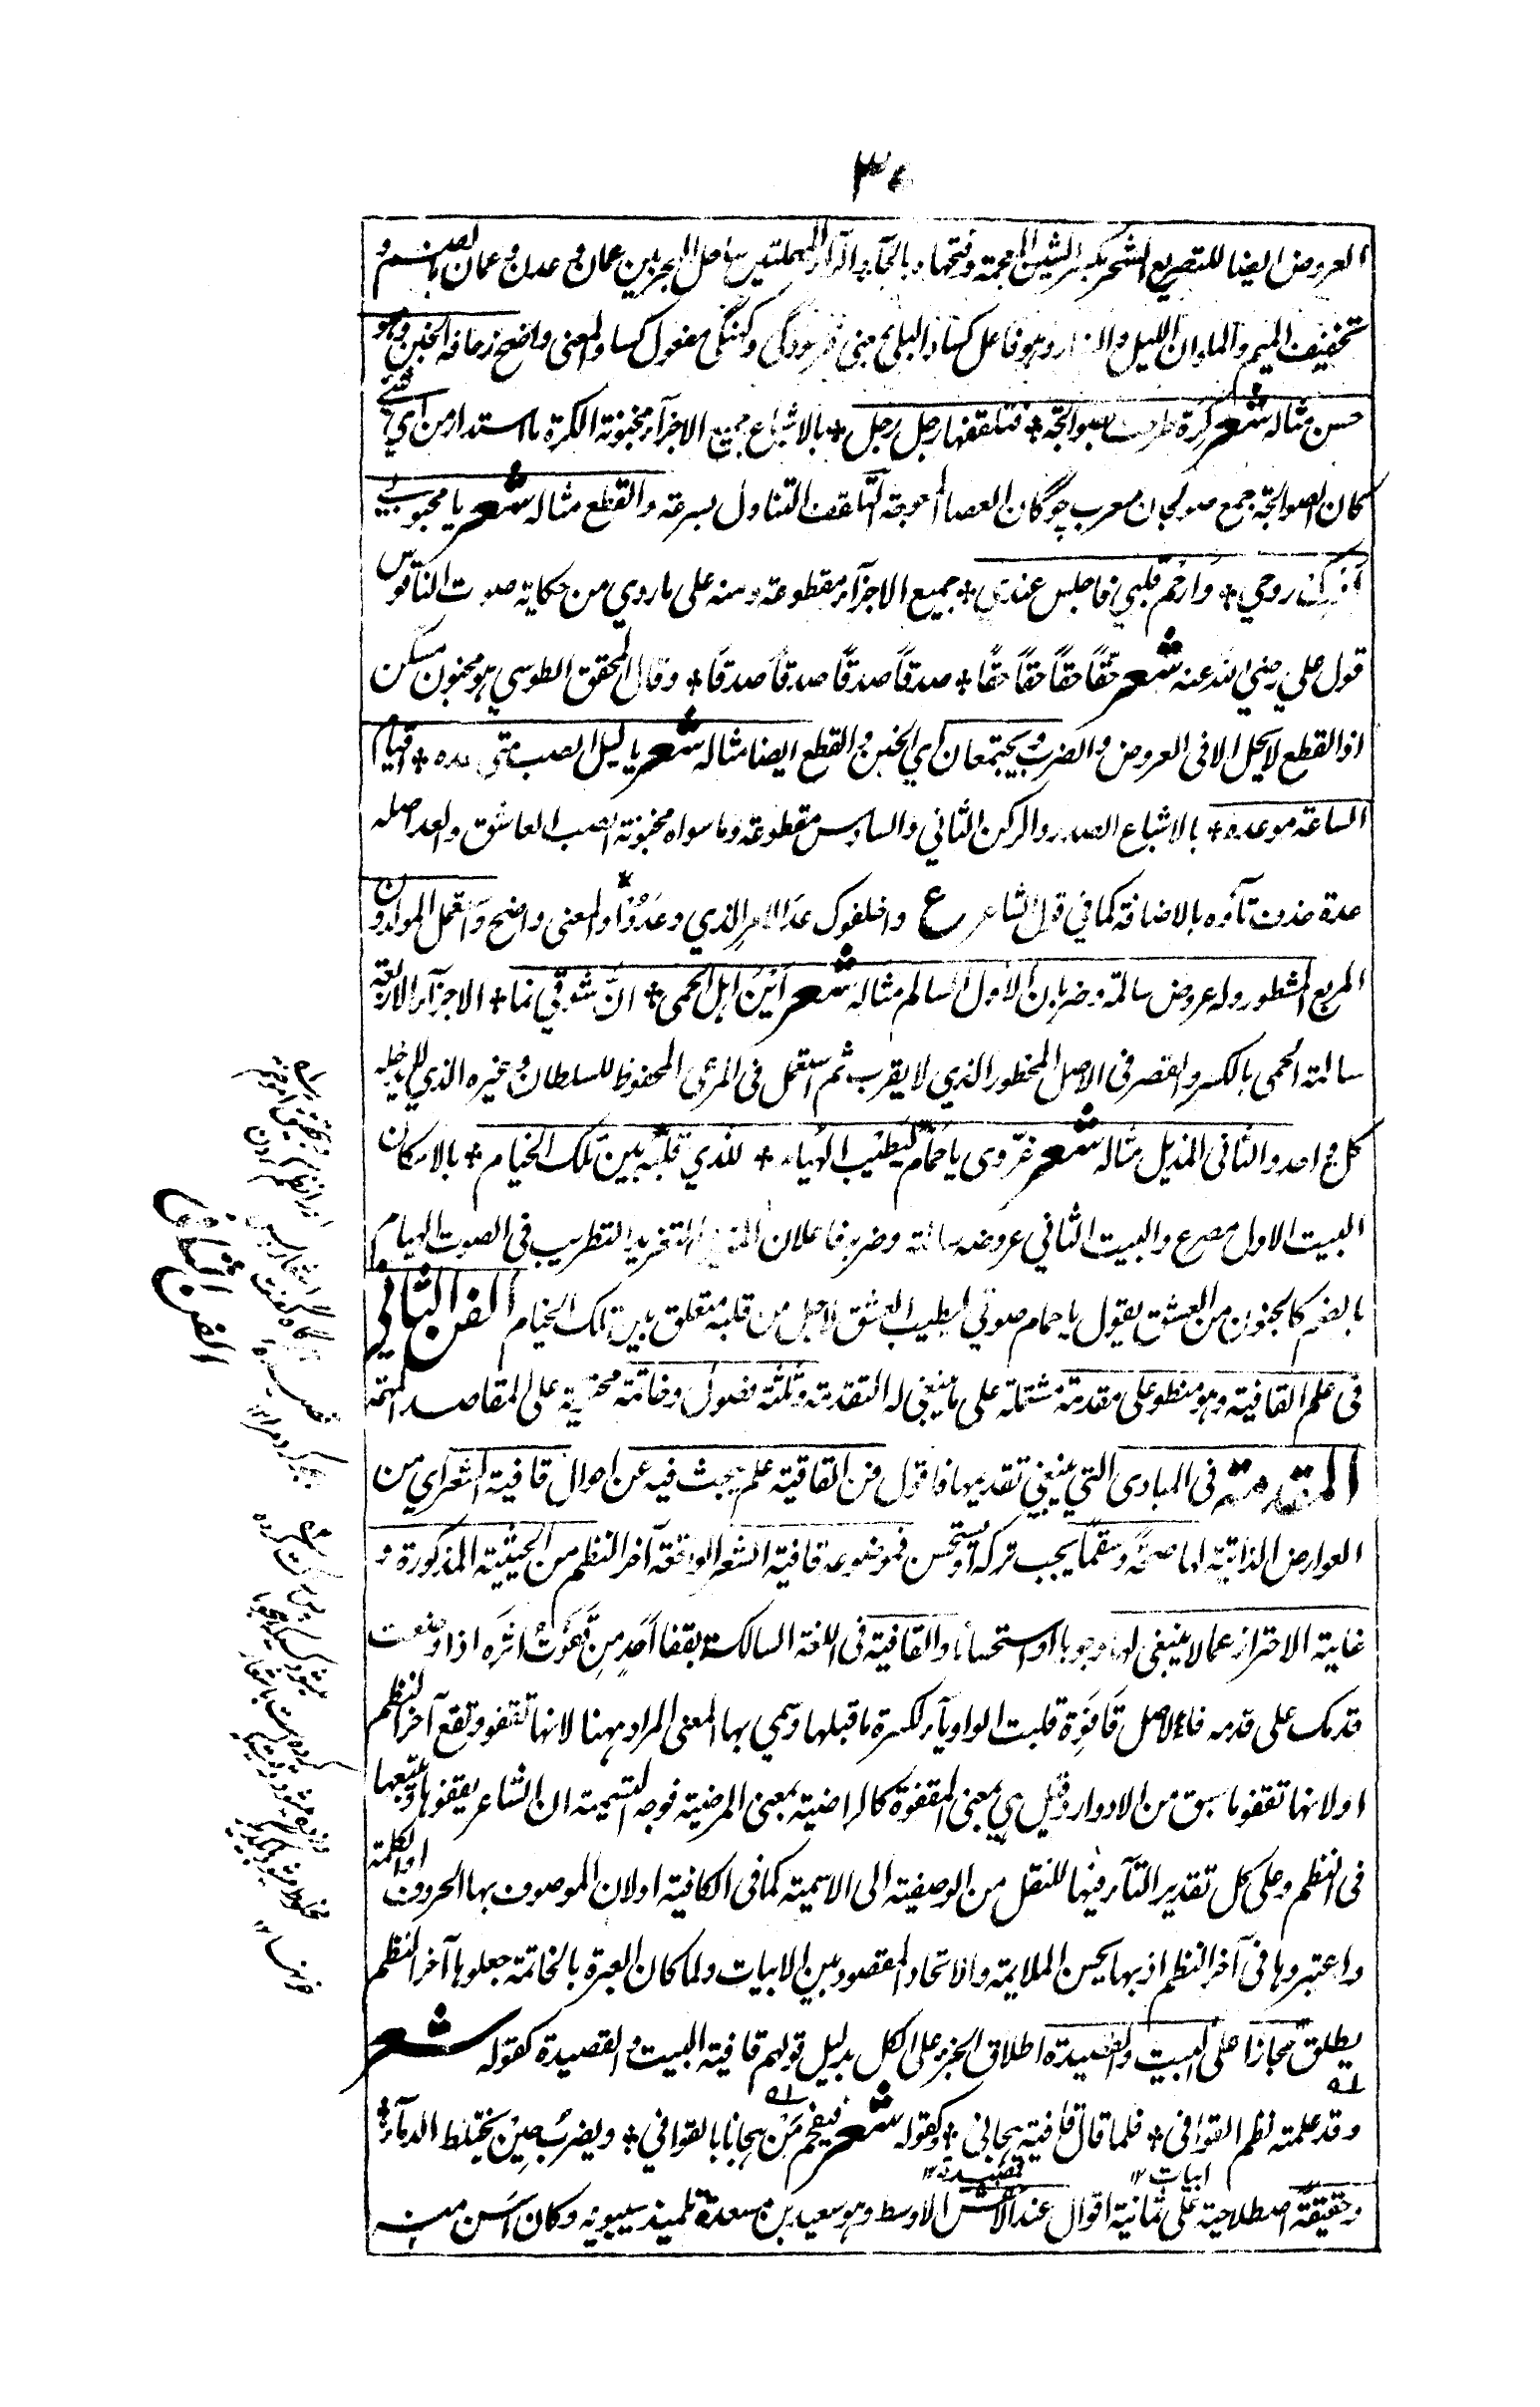 ٣٠
العروض ايضا للتصريع الشحر بكسر الشين المعجمة وفتحها وبالحآء والرآء المهملتين ساحل البحر بين عمان و عدن و عمان بالضم و
تخفيف الميم والملوان الليل والانهار وهو فاعل كسا والبلى بمعنى فرسودگى وكهنگى مفعول كسا والمعنى واضح زحافه الخبن وهو
حسن مثاله شعر كرة طرحت بصوالجة * فتلقفها رجل رجل * بالاشباع جميع الاجزآء مخبونة الكرة ما استدار من اي شئ
كان الصوالجة جمع صولجان معرب چوگان العصا المعوجة التلقف التناول بسرعة والقطع مثاله شعر يا محبوبي
روحي * وارحم قلبي فاجلس عندي * جميع الاجزآء مقطوعة ومنه على ما روي من حكاية صوت الناقوس
قول علي رضي الله عنه شعر حقًا حقًا حقًا حقًا * صدقًا صدقًا صدقًا صدقًا * وقال المحقق الطوسي هو مخبون مسكن
اذ القطع لا يحل الا فى العروض والضرب ويجتمعان اي الخبن و القطع ايضا مثاله شعر يا ليل الصب متى غده * اقيام
الساعة موعده * بالاشباع الصدر والركن الثاني والسادس مقطوعة وما سواه مخبونة الصب العاشق والعد اصله
عدة حذف تآوه بالاضافة كما في قول الشاعر ع واخلفوك عدَ الامرِ الذي وعدُوْا والمعنى واضح واستعمل المولدون
المربع المشطور وله عروض سالمة وضربان الاول السالم مثاله شعر اَيْنَ اهل الحمى * انّ شوقي نما * الاجزآء الاربعة
سالمة الحمى بالكسر والقصر فى الاصل المحظور الذي لا يقرب ثم استعمل فى المرعى المحفوظ للسلطان و غيره الذي لا يدخله
كل واحد والثانى المذيل مثاله شعر غرّدى يا حمام ليطيب الهيام * للذي قلبُه بين تلك الخيام * بالاسكان
البيت الاول مصرع والبيت الثاني عروضه سالمة وضربه فاعلان المذيل التغريد التطريب فى الصوت الهيام
بالضم كالجنون من العشق يقول يا حمام صوتي ليطيب العشق لاجل من قلبه متعلق بين تلك الخيام الفن الثاني
فى علم القافية وهو منطو على مقدمة مشتملة على ما ينبغي له التقدمة وثلثة فصول وخاتمة محتوية على المقاصد المهمة
المقدمة فى المبادى التي ينبغي تقديمها فاقول فن القافية علم يبحث فيه عن احوال قافية الشعر اي من
العوارض الذاتية لها صحةً وسقمًا يجب تركه او يستحسن فموضوعه قافية الشعر الواقعة آخر النظم من الحيثية المذكورة و
غاية الاحتراز عما لا ينبغى لها وجوبا او استحسانا والقافية فى اللغة السالكة بقفا اَحَدٍ مِن قَفَوْتُ اثرَه اذا وضعت
قدمك على قدمه فالاصل قَافِوَة قلبت الواو يآء لكسرة ما قبلها وسمي بها المعنى المراد ههنا لانها تقفو وتقع آخر النظم
او لانها تقفو ما سبق من الادوار وقيل هي بمعنى المقفوة كالراضية بمعنى المرضية فوجه التسمية ان الشاعر يقفوها ويتبعها
فى النظم وعلى كل تقدير التآء فيها للنقل من الوصفية الى الاسمية كما فى الكافية او لان الموصوف بها الحروف او الكلمة
واعتبروها فى آخر النظم اذ بها يحسن الملايمة والاتحاد المقصود بين الابيات ولما كان العبرة بالخاتمة جعلوها آخر النظم
يطلق مجازا على البيت والقصيدة اطلاق الجزء على الكل بدليل قولهم قافية البيت و القصيدة كقوله شعر
وقد علمته نظم القوافى * فلما قال قافية هجانى * وكقوله شعر نيفحم مَنْ هجانا بالقوافي * ويضربُ حِيْنَ يختلط الدمآء *
ابيات ١٢
قصيدة ١٢
وحقيقةً اصطلاحية على ثمانية اقوال عند الاخفش الاوسط وهو سعيد بن مسعدة تلميذ سيبويه وكان اسن منه
الفن الثانى